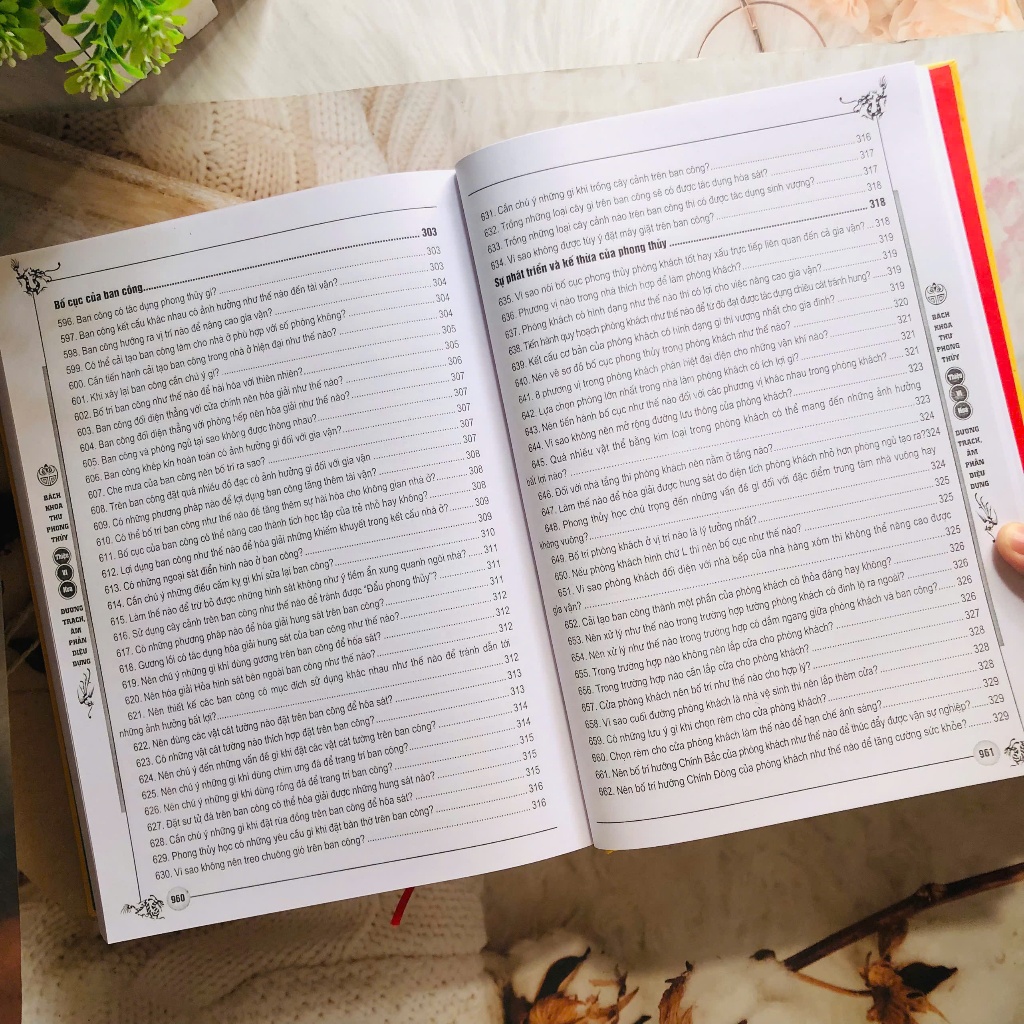 Bố cục của ban công 303
596. Ban công có tác dụng phong thủy gì? 303
597. Ban công kết cấu khác nhau có ảnh hưởng như thế nào đến tài vận? 303
598. Ban công hướng ra vị trí nào để nâng cao gia vận? 304
599. Có thể cải tạo ban công làm cho nhà ở phù hợp với số phòng không? 304
600. Cần tiến hành cải tạo ban công trong nhà ở hiện đại như thế nào? 304
601. Khi xây lại ban công cần chú ý gì? 305
602. Bố trí ban công như thế nào để hài hòa với thiên nhiên? 305
603. Ban công đối diện thẳng với cửa chính nên hóa giải như thế nào? 306
604. Ban công đối diện thẳng với phòng bếp nên hóa giải như thế nào? 307
605. Ban công và phòng ngủ tại sao không được thông nhau? 307
606. Ban công khép kín hoàn toàn có ảnh hưởng gì đối với gia vận? 307
607. Che mưa của ban công nên bố trí ra sao? 307
608. Trên ban công đặt quá nhiều đồ đạc có ảnh hưởng gì đối với gia vận 307
609. Có những phương pháp nào để lợi dụng ban công tăng thêm tài vận? 308
610. Có thể bố trí ban công như thế nào để tăng thêm sự hài hòa cho không gian nhà ở? 308
611. Bố cục của ban công có thể nâng cao thành tích học tập của trẻ nhỏ hay không? 308
612. Lợi dụng ban công như thế nào để hóa giải những khiếm khuyết trong kết cấu nhà ở? 309
613. Có những ngoại sát điển hình nào ở ban công? 309
614. Cần chú ý những điều cấm kỵ gì khi sửa lại ban công? 310
615. Làm thế nào để trừ bỏ được những hình sát không như ý tiềm ẩn xung quanh ngôi nhà? 311
616. Sử dụng cây cảnh trên ban công như thế nào để tránh được "Đầu phong thủy"? 311
617. Có những phương pháp nào để hóa giải hung sát trên ban công? 311
618. Gương lồi có tác dụng hóa giải hung sát của ban công như thế nào? 312
619. Nên chú ý những gì khi dùng gương trên ban công để hóa sát? 312
620. Nên hóa giải Hỏa hình sát bên ngoài ban công như thế nào? 312
621. Nên thiết kế các ban công có mục đích sử dụng khác nhau như thế nào để tránh dẫn tới
những ảnh hưởng bất lợi? 312
622. Nên dùng các vật cát tường nào đặt trên ban công để hóa sát? 313
623. Có những vật cát tường nào thích hợp đặt trên ban công? 313
624. Nên chú ý đến những vấn đề gì khi đặt các vật cát tường trên ban công? 314
625. Nên chú ý những gì khi dùng chim ưng đá để trang trí ban công? 314
626. Nên chú ý những gì khi dùng rồng đá để trang trí ban công? 315
627. Đặt sư tử đá trên ban công có thể hóa giải được những hung sát nào? 315
628. Cần chú ý những gì khi đặt rùa đồng trên ban công để hóa sát? 315
629. Phong thủy học có những yêu cầu gì khi đặt bàn thờ trên ban công? 316
630. Vì sao không nên treo chuông gió trên ban công? 316
BÁCH
KHOA
THƯ
PHONG
THỦY
Thiện
Vĩ
Hòa
DƯƠNG
TRẠCH,
ÂM
PHẦN
DIỆU
DỤNG
960
631. Cần chú ý những gì khi trồng cây cảnh trên ban công? 316
632. Trồng những loại cây gì trên ban công sẽ có được tác dụng hóa sát? 317
633. Trồng những loại cây cảnh nào trên ban công thì có được tác dụng sinh vượng? 317
634. Vì sao không được tùy ý đặt máy giặt trên ban công? 318
Sự phát triển và kế thừa của phong thủy 318
635. Vì sao nói bố cục phong thủy phòng khách tốt hay xấu trực tiếp liên quan đến cả gia vận? 318
636. Phương vị nào trong nhà thích hợp để làm phòng khách? 319
637. Phòng khách có hình dạng như thế nào thì có lợi cho việc nâng cao gia vận? 319
638. Tiến hành quy hoạch phòng khách như thế nào để từ đó đạt được tác dụng chiêu cát tránh hung? 319
639. Kết cấu cơ bản của phòng khách có hình dạng gì thì vượng nhất cho gia đình? 319
640. Nên vẽ sơ đồ bố cục phong thủy trong phòng khách như thế nào? 320
641. 8 phương vị trong phòng khách phân biệt đại diện cho những vận khí nào? 321
642. Lựa chọn phòng lớn nhất trong nhà làm phòng khách có ích lợi gì? 321
643. Nên tiến hành bố cục như thế nào đối với các phương vị khác nhau trong phòng khách? 321
644. Vì sao không nên mở rộng đường lưu thông của phòng khách? 323
645. Quá nhiều vật thể bằng kim loại trong phòng khách có thể mang đến những ảnh hưởng
bất lợi nào? 323
646. Đối với nhà tầng thì phòng khách nên nằm ở tầng nào? 324
647. Làm thế nào để hóa giải được hung sát do diện tích phòng khách nhỏ hơn phòng ngủ tạo ra?324
648. Phong thủy học chú trọng đến những vấn đề gì đối với đặc điểm trung tâm nhà vuông hay
không vuông? 324
649. Bố trí phòng khách ở vị trí nào là lý tưởng nhất? 325
650. Nếu phòng khách hình chữ L thì nên bố cục như thế nào? 325
651. Vì sao phòng khách đối diện với nhà bếp của nhà hàng xóm thì không thể nâng cao được
gia vận? 325
652. Cải tạo ban công thành một phần của phòng khách có thỏa đáng hay không? 326
653. Nên xử lý như thế nào trong trường hợp tường phòng khách có đinh lộ ra ngoài? 326
654. Nên xử lý như thế nào trong trường hợp có dầm ngang giữa phòng khách và ban công? 326
655. Trong trường hợp nào không nên lắp cửa cho phòng khách? 326
656. Trong trường hợp nào cần lắp cửa cho phòng khách? 327
657. Cửa phòng khách nên bố trí như thế nào cho hợp lý? 328
658. Vì sao cuối đường phòng khách là nhà vệ sinh thì nên lắp thêm cửa? 328
659. Có những lưu ý gì khi chọn rèm cho cửa phòng khách? 329
960. Chọn rèm cho cửa phòng khách làm thế nào để hạn chế ánh sáng? 329
661. Nên bố trí hướng Chính Bắc của phòng khách như thế nào để thúc đẩy được vận sự nghiệp? 329
962. Nên bố trí hướng Chính Đông của phòng khách như thế nào để tăng cường sức khỏe? 329
BÁCH
KHOA
THƯ
PHONG
THỦY
Thiện
Vĩ
Hòa
DƯƠNG
TRẠCH,
ÂM
PHẦN
DIỆU
DỤNG
961